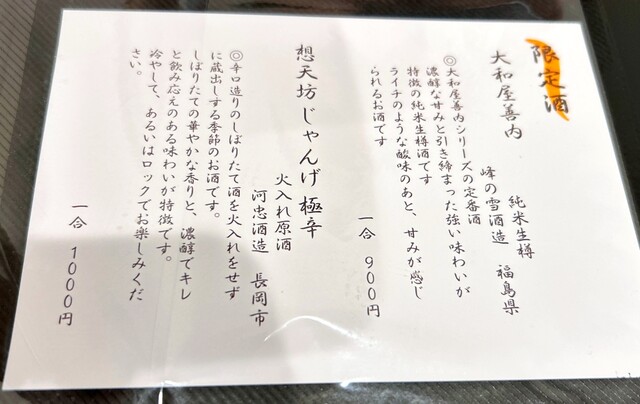 限定酒
大和屋善内
純米生樽
峰の雪酒造　福島県
◎大和屋善内シリーズの定番酒
濃醇な甘みと引き締まった強い味わいが
特徴の純米生樽酒です
ライチのような酸味のあと、甘みが感じ
られるお酒です
一合　900円
想天坊 じゃんげ 極辛
火入れ原酒
河忠酒造　長岡市
◎辛口造りのしぼりたて酒を火入れをせず
に蔵出しする季節のお酒です。
しぼりたての華やかな香りと、濃醇でキレ
と飲み応えのある味わいが特徴です。
冷やして、あるいはロックでお楽しみくだ
さい。
一合　1000円